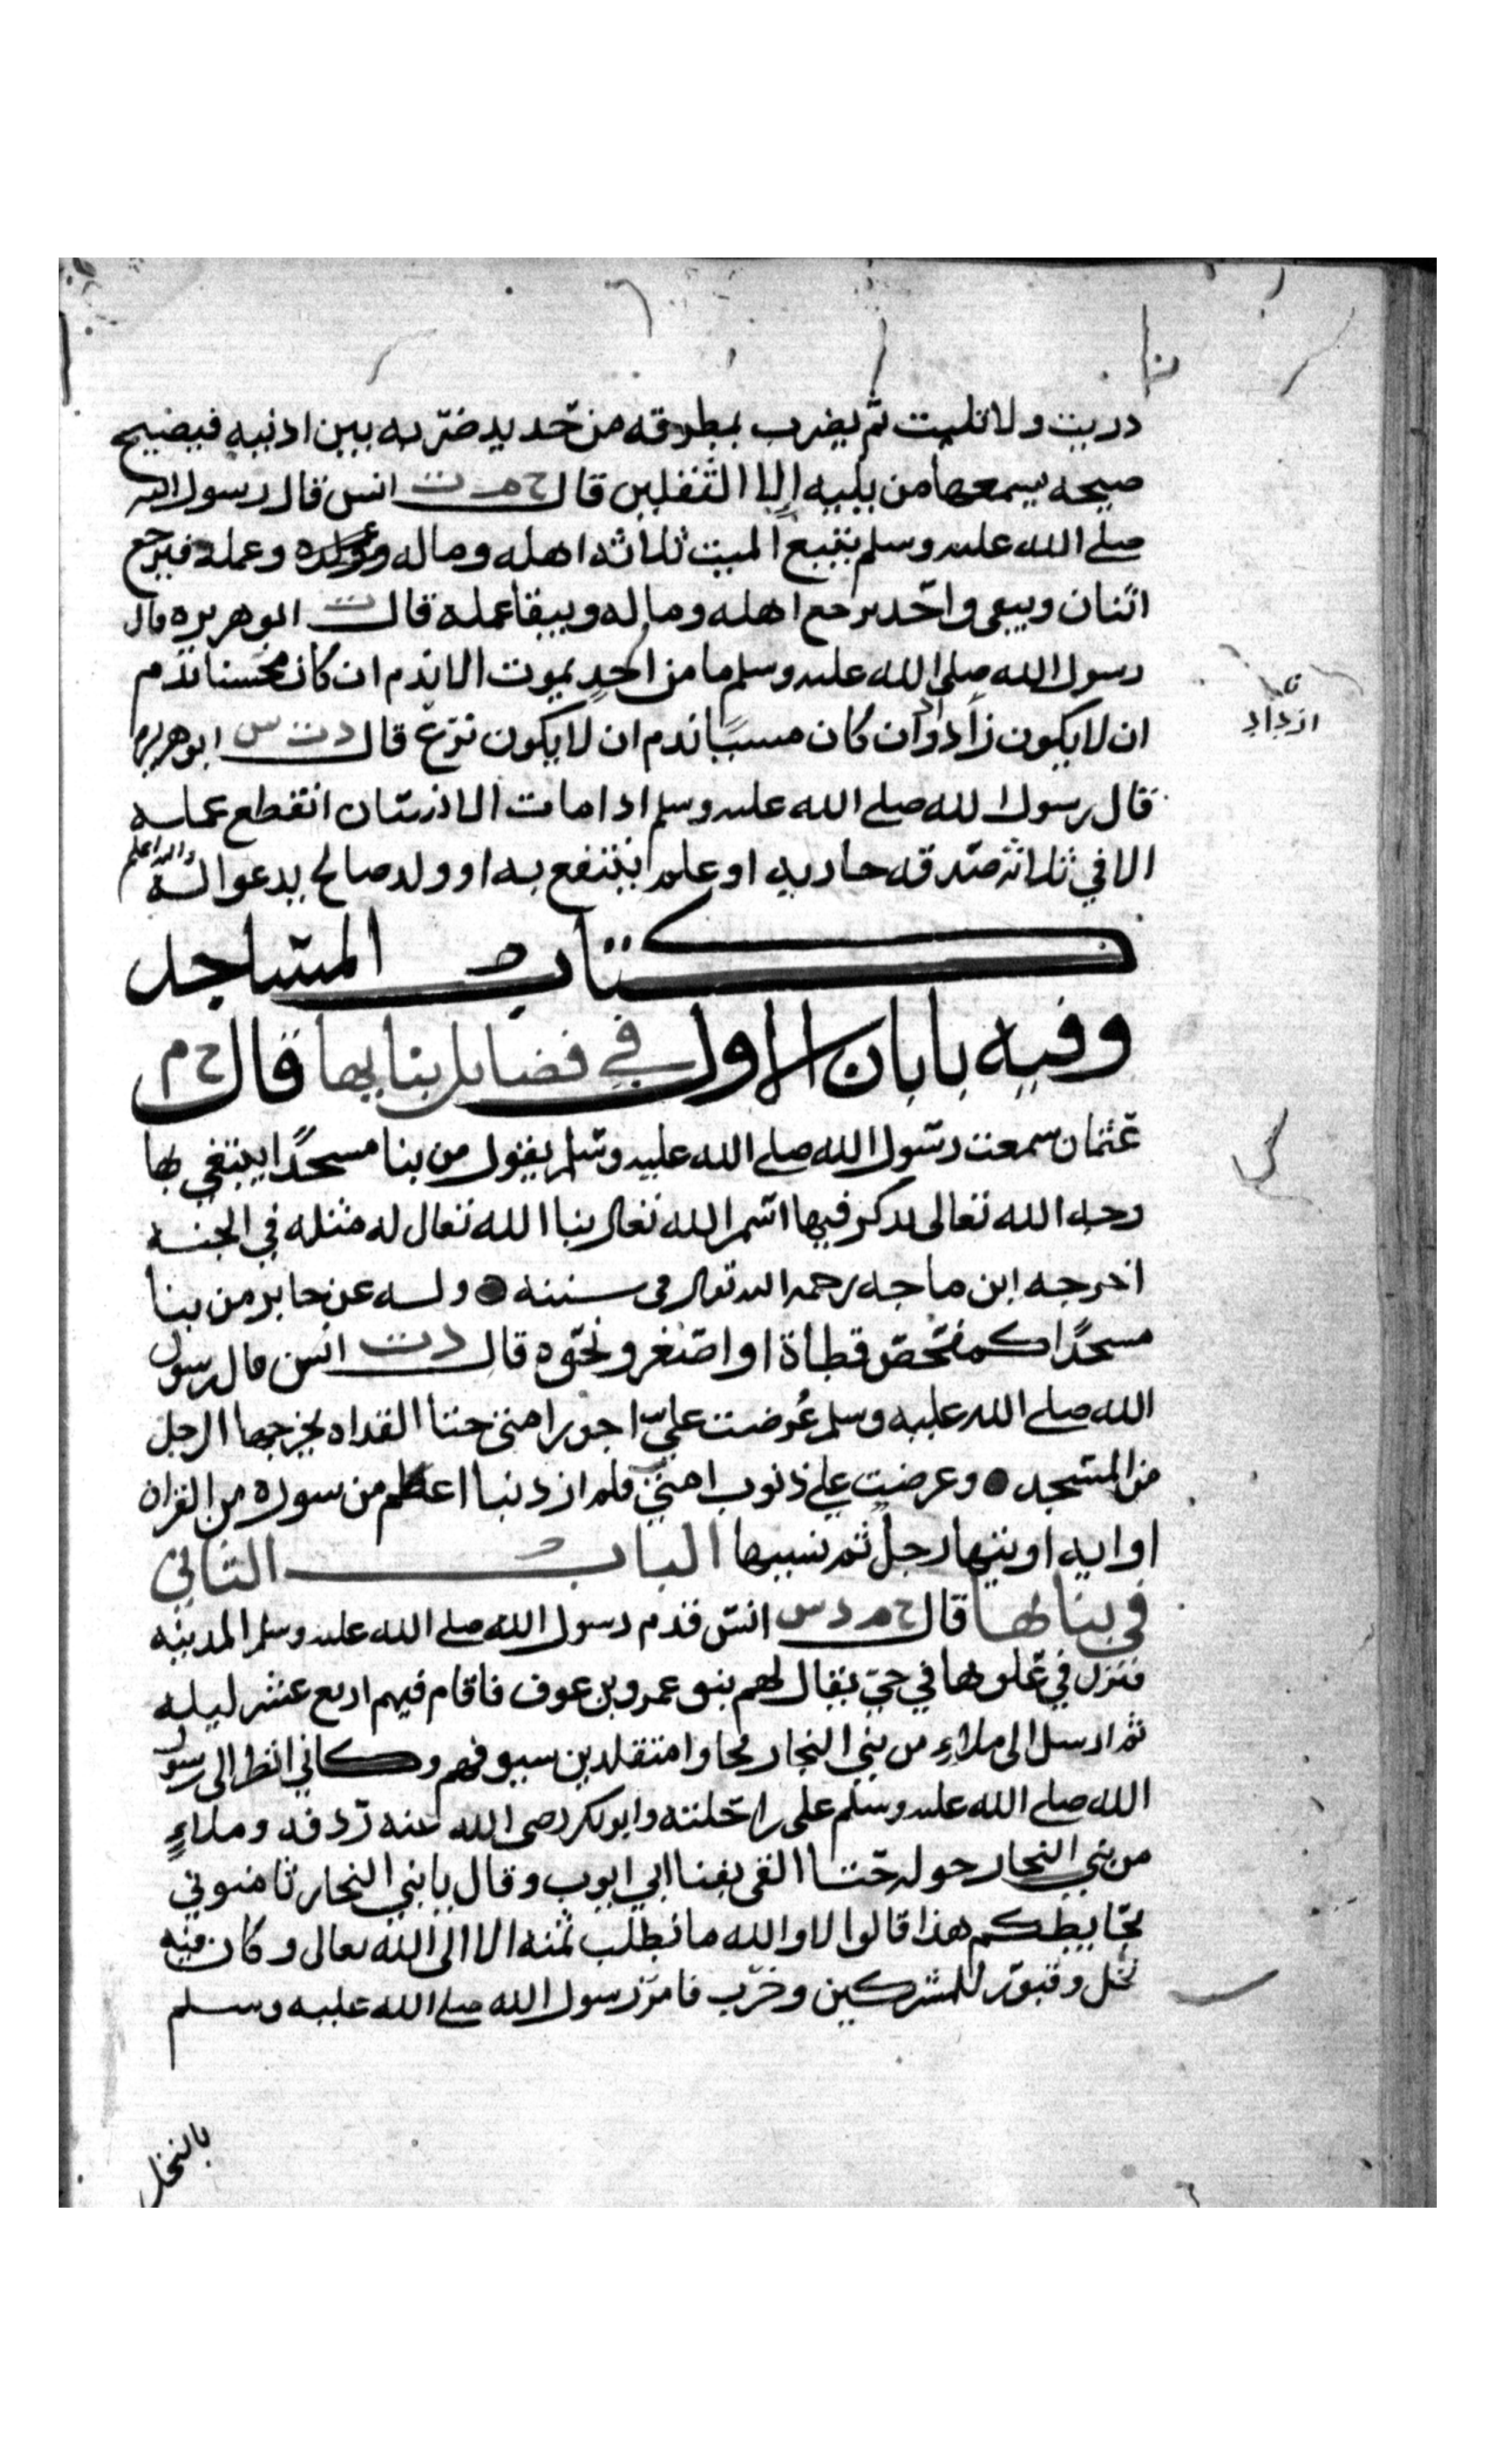 دريت ولا تليت ثم يضرب بمطرقه من حديد ضربه بين اذنيه فيصيح
صيحه يسمعها من يليه الا الثقلين قال خ م ت انس قال رسول الله
صلى الله عليه وسلم يتبع الميت ثلاثه اهله وماله وعمله فيرجع
اثنان ويبقى واحد يرجع اهله وماله ويبقا عمله قال ت ابو هريره قال
رسول الله صلى الله عليه وسلم ما من احد يموت الا ندم ان كان محسنا ندم
ان لا يكون زاد وان كان مسيئا ندم ان لا يكون نزع قال د ت س ابو هريره
قال رسول الله صلى الله عليه وسلم اذا مات الانسان انقطع عمله
الا في ثلاثه صدقه جاريه او علم ينتفع به او ولد صالح يدعوا له والله اعلم
كتاب المساجد
وفيه بابان الاول في فضايل بنايها قال خ م
عثمان سمعت رسول الله صلى الله عليه وسلم يقول من بنا مسجدا يبتغي بها
وجه الله تعالى يذكر فيها اسم الله تعالى بنا الله تعالى له مثله في الجنه
اخرجه ابن ماجه رحمه الله تعالى في سننه وله عن جابر من بنا
مسجدا كمفحص قطاة او اصغر ونحوه قال د ت انس قال رسول
الله صلى الله عليه وسلم عُرضت عليّ اجور امتي حتا القذاه يخرجها الرجل
من المسجد وعرضت علي ذنوب امتي فلم ار ذنبا اعظم من سوره من القران
او ايه اوتيها رجل ثم نسيها الباب الثاني
في بنايها قال خ م د س انس قدم رسول الله صلى الله عليه وسلم المدينه
فنزل في علوها في حي يقال لهم بنو عمرو بن عوف فاقام فيهم اربع عشر ليله
ثم ارسل الى ملاء من بني النجار فجاوا متقلدين سيوفهم وكاني انظر الى رسول
الله صلى الله عليه وسلم على راحلته وابو بكر رضي الله عنه ردفه وملاءٍ
من بني النجار حوله حتا القى بفنا ابي ايوب وقال يا بني النجار ثامنوني
بحايطكم هذا قالوا لا والله ما نطلب ثمنه الا الى الله تعالى وكان فيه
نخل وقبور للمشركين وخرب فامر رسول الله صلى الله عليه وسلم
ازداد
بالنخل